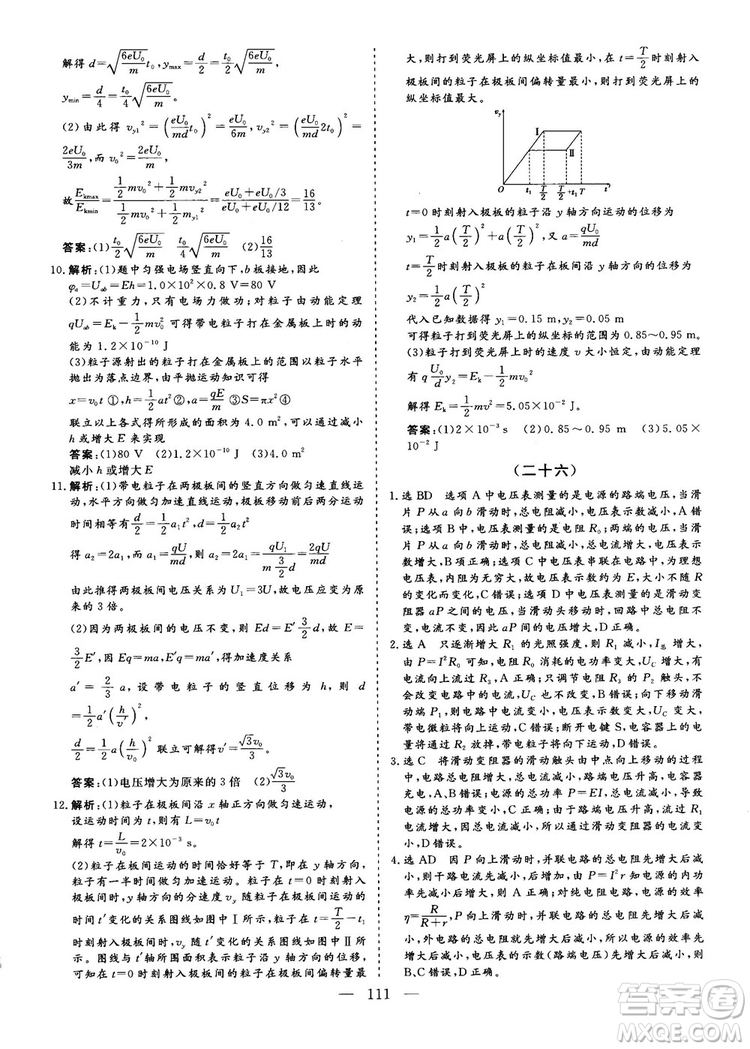 解得 d=√(6eU₀/m) t₀, y_max=d/2=t₀/2 √(6eU₀/m),
y_min=d/4=t₀/4 √(6eU₀/m)。
(2)由此得 v_y1²=(eU₀/md t₀)²=eU₀/6m, v_y2²=(eU₀/md 2t₀)²=
2eU₀/3m,而 v₀²=2eU₀/m,
故 E_kmax/E_kmin=(½mv₀²+½mv_y2²)/(½mv₀²+½m_y1²)=(eU₀+eU₀/3)/(eU₀+eU₀/12)=16/13
答案:(1)t₀/2 √(6eU₀/m) t₀/4 √(6eU₀/m) (2)16/13
10.解析:(1)题中匀强电场竖直向下,b板接地,因此
φₐ=U_ab=Eh=1.0×10²×0.8 V=80 V
(2)不计重力,只有电场力做功;对粒子由动能定理
qU_ab=E_k-½mv₀²可得带电粒子打在金属板上时的
动能为1.2×10⁻¹⁰ J
(3)粒子源射出的粒子打在金属板上的范围以粒子水平
抛出为落点边界,由平抛运动知识可得
x=v₀t①,h=½at²②,a=qE/m③,S=πx²④
联立以上各式得所形成的面积为4.0 m²,可以通过减小
h或增大E来实现
答案:(1)80 V (2)1.2×10⁻¹⁰ J (3)4.0 m²
减小h或增大E
11.解析:(1)带电粒子在两极板间的竖直方向做匀速直线运
动,水平方向做匀加速直线运动。极板移动前后两分运动
时间相等,有3d/2=½a₁t²,d/2=½a₂t²
得a₂=2a₁,而a₁=qU/md,a₂=qU₁/(m 3/2 d)=2qU₁/3md
由此推得两极板间电压关系为U₁=3U,故电压应变为原
来的3倍。
(2)因为两极板间的电压不变,则Ed=E′3/2d,故E=
3/2E′,因Eq=ma,E′q=ma′,得a=3/2a′
a′=2/3a,设带电粒子的竖直位移为h,则d
=½a′(h/v′)²
d/2=½a(h/v₀)²联立可解得v′=√3v₀/3
答案:(1)电压增大为原来的3倍 (2)√3v₀/3
12.解析:(1)粒子在极板间沿x轴正方向做匀速运动,
设运动时间为t,则有L=v₀t
解得t=L/v₀=2×10⁻³ s。
(2)粒子在板间运动的时间恰好等于T,即在y轴方向,
粒子开始一半时间做匀加速运动。粒子在t=0时刻射入
极板间时,v_y随t′变化的关系图线如图Ⅰ所示,t=T/2-t₁
时刻射入时,v_y随t′变化的关系图线如图Ⅱ所
示。图线与t′轴所围面积表示沿y轴方向运动的位移,
可知t=0时刻射入极板间的粒子在极板间偏转量最
大,则打到荧光屏上的纵坐标值最小,在t=T/2时刻射入
极板间的粒子在极板间偏转量最小,则打到荧光屏上的
纵坐标值最大。
v_y
Ⅰ
Ⅱ
O t₁ T/2 T/2+t₁ T t′
t=0时刻射入极板的粒子沿y轴方向运动的位移为
y₁=½a(T/2)²+a(T/2)²,又a=qU₀/md
t=T/2时刻射入极板间的粒子沿y轴方向运动的位移为
y₂=½a(T/2)²
代入已知数据得y₁=0.15 m,y₂=0.05 m
可得粒子打到荧光屏上的纵坐标的范围为0.85~0.95 m。
(3)粒子打到荧光屏上时的速度v大小恒定,由动能定理
有q U₀/d y₂=E_k-½mv₀²
解得E_k=½mv²=5.05×10⁻² J。
答案:(1)2×10⁻³ s (2)0.85~0.95 m (3)5.05×
10⁻² J
(二十六)
1.选BD 选项A中电压表测量的是电源的路端电压,当滑
片P从a向b滑动时,总电阻减小,电压表示数减小,A错
误;选项B中,电压表测量的是电阻R₀;两端的电压,当滑
片P从a向b滑动时,总电阻减小,总电流增大,电压表示
数增大,B正确;选项C中电压表串联在电路中,为理想
电压表,内阻无穷大,则电路断路,电压表示数不随电阻R
的变化而变化,C错误;选项D中电压表测量的是滑动变
阻器aP之间的电压,当滑动头移动时,回路中总电阻不
变,电流不变,因此aP间的电压增大,D正确。
2.选A 只逐渐增大R₁的光照强度,R₁的阻值减小,I总增
大,由P=I²R₀可知R₀消耗的电功率增大,U_C增大,电
容器的电荷量增大,A正确;只调节电阻R₂的P₂触头,不
会改变电路中电流和电压,U_C不变,B错误;向下移动滑
动端P₁,则总电阻增大,电路中电流变小,U_C变小,因此
带电微粒会向下运动,C错误;断开电键S,电容器的电荷
量将通过R₂放掉,带电粒子向下运动,D错误。
3.选C 将滑动变阻器的滑动触头由中点向上移动的过程
中,电路总电阻增大,总电流减小,路端电压增大,电容器
充电,A、B错误;由于总电流减小,由P=EI,总电流减小,
电源的总功率变小,C正确;由于路端电压增大,通过R₁
电流增大,而总电流减小,所以通过滑动变阻器的电流减
小,D错误。
4.选AD 因P向上滑动时,并联电路的总电阻先增大后减
小,则干路中的电流先减小后增大,由P=I²r知电源的内
功率先减小后增大,A正确;对纯电阻电路,电源的效率
η=R/(R+r),在P向上滑动时,并联电阻先增大后减
小,外电路的总电阻先增大后减小,则电源的效率先增大
后减小,电源的输出电压(路端电压)先增大后减小,
B、C错误,D正确。
— 111 —
答案圈
MXQE.COM